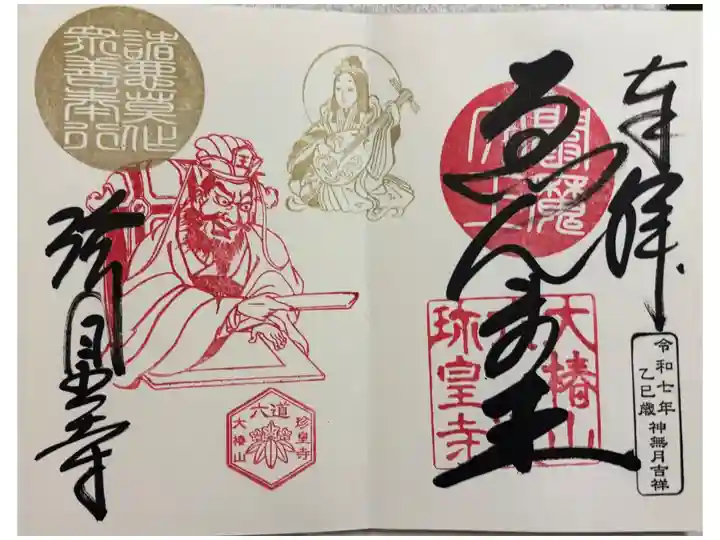 奉拝
令和七年
乙巳歳 神無月吉祥
閻魔
大王
ゑんま王
大椿山
珎皇寺
諸悪莫作
衆善奉行
王
六道
珍皇寺
大椿山
珍皇寺